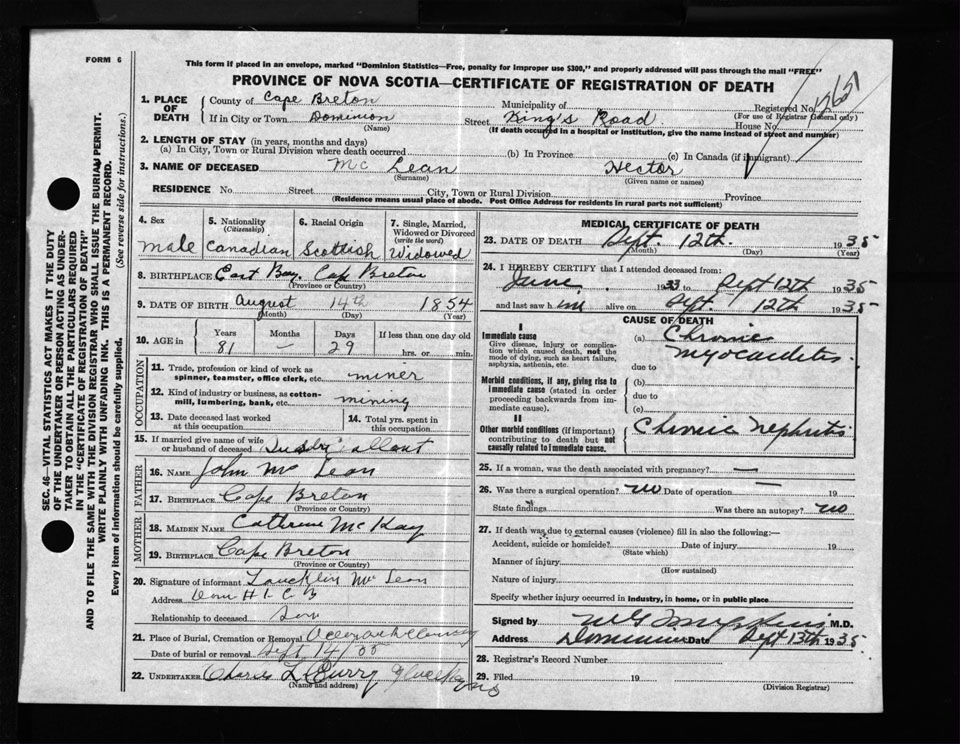 FORM 6
This form if placed in an envelope, marked "Dominion Statistics—Free, penalty for improper use $300," and properly addressed will pass through the mail "FREE"
PROVINCE OF NOVA SCOTIA—CERTIFICATE OF REGISTRATION OF DEATH
1. PLACE OF DEATH
County of Cape Breton Municipality of Registered No.
(For use of Registrar General only)
If in City or Town Dominion Street King's Road House No.
(Name) (If death occurred in a hospital or institution, give the name instead of street and number)
2. LENGTH OF STAY (in years, months and days)
(a) In City, Town or Rural Division where death occurred (b) In Province (c) In Canada (if immigrant)
3. NAME OF DECEASED Mc Lean Hector
(Surname) (Given name or names)
RESIDENCE No. Street City, Town or Rural Division Province
(Residence means usual place of abode. Post Office Address for residents in rural parts not sufficient)
SEC. 46—VITAL STATISTICS ACT MAKES IT THE DUTY
OF THE UNDERTAKER OR PERSON ACTING AS UNDER-
TAKER TO OBTAIN ALL THE PARTICULARS REQUIRED
IN THE "CERTIFICATE OF REGISTRATION OF DEATH"
AND TO FILE THE SAME WITH THE DIVISION REGISTRAR WHO SHALL ISSUE THE BURIAL PERMIT.
WRITE PLAINLY WITH UNFADING INK. THIS IS A PERMANENT RECORD.
Every item of Information should be carefully supplied. (See reverse side for instructions.)
4. Sex 5. Nationality (Citizenship) 6. Racial Origin 7. Single, Married, Widowed or Divorced (write the word)
male Canadian Scottish Widowed
8. BIRTHPLACE East Bay, Cape Breton
(Province or Country)
9. DATE OF BIRTH August 14th 1854
(Month) (Day) (Year)
10. AGE in Years Months Days If less than one day old
81 — 29 hrs. or min.
OCCUPATION
11. Trade, profession or kind of work as spinner, teamster, office clerk, etc. miner
12. Kind of industry or business, as cotton-mill, lumbering, bank, etc. mining
13. Date deceased last worked at this occupation
14. Total yrs. spent in this occupation
15. If married give name of wife or husband of deceased
FATHER
16. NAME John Mc Lean
17. BIRTHPLACE Cape Breton
(Province or Country)
MOTHER
18. MAIDEN NAME Cathrene McKay
19. BIRTHPLACE Cape Breton
(Province or Country)
20. Signature of informant Laucklin Mc Lean
Address
Relationship to deceased Son
21. Place of Burial, Cremation or Removal
Date of burial or removal Sept 14/35
22. UNDERTAKER Charles L Curry
(Name and address)
MEDICAL CERTIFICATE OF DEATH
23. DATE OF DEATH Sept. 12th. 1935
(Month) (Day) (Year)
24. I HEREBY CERTIFY that I attended deceased from:
June 1933 to Sept 12th 1935
and last saw him alive on Sept. 12th 1935
CAUSE OF DEATH
I
Immediate cause
Give disease, injury or complication which caused death, not the mode of dying, such as heart failure, asphyxia, asthenia, etc.
(a) Chronic myocarditis.
due to
Morbid conditions, if any, giving rise to immediate cause (stated in order proceeding backwards from immediate cause).
(b)
due to
(c)
II
Other morbid conditions (if important) contributing to death but not causally related to immediate cause.
Chronic nephritis
25. If a woman, was the death associated with pregnancy? —
26. Was there a surgical operation? no Date of operation — 19
State findings Was there an autopsy? no
27. If death was due to external causes (violence) fill in also the following:—
Accident, suicide or homicide? Date of injury 19
(State which)
Manner of injury
(How sustained)
Nature of injury
Specify whether injury occurred in industry, in home, or in public place
Signed by M.D.
Address Dominion Date Sept 13th 1935
28. Registrar's Record Number
29. Filed 19
(Division Registrar)